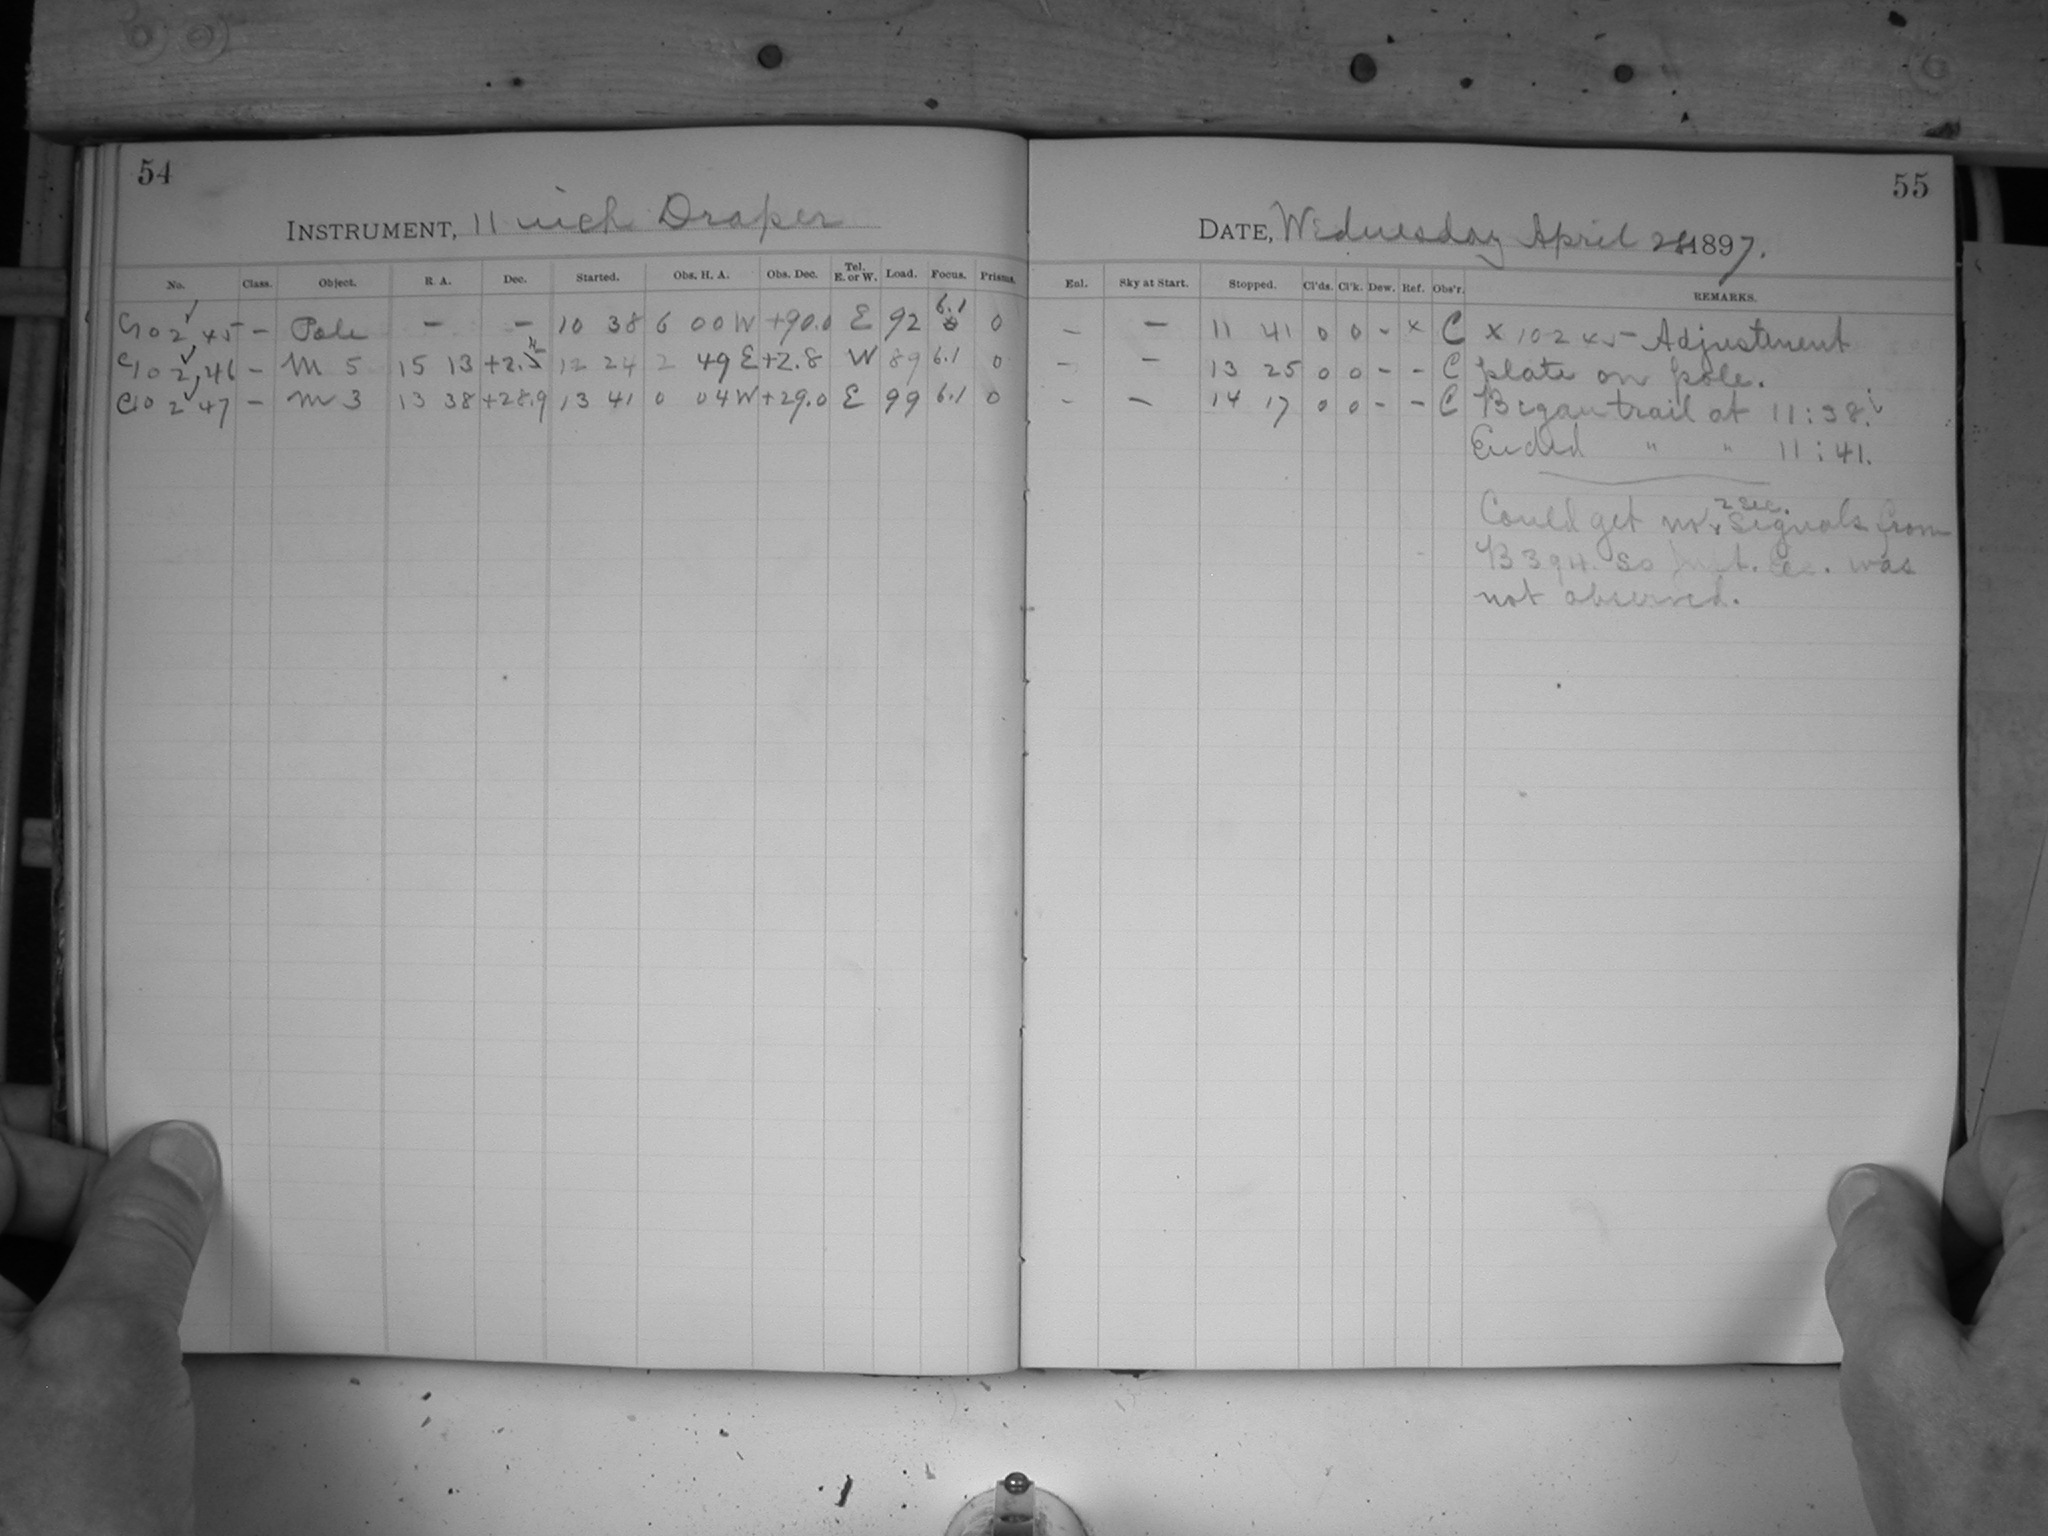 54
INSTRUMENT, 11 inch Draper
No. Class. Object. R. A. Dec. Started. Obs. H. A. Obs. Dec. Tel. E. or W. Load. Focus. Prisms.
C 10245 – Pole – – 10 38 6 00 W +90.0 E 92 6.1 0
C 10246 – M 5 15 13 +2. 12 24 2 49 E +2.8 W 89 6.1 0
C 10247 – M 3 13 38 +28.9 13 41 0 04 W +29.0 E 99 6.1 0
55
DATE, Wednesday April 1897.
Enl. Sky at Start. Stopped. Cl'ds. Cl'k. Dew. Ref. Obs'r. REMARKS.
– – 11 41 0 0 – x C x 10245 – Adjustment
– – 13 25 0 0 – – C plate on pole.
– – 14 17 0 0 – – C Began trail at 11:38.
Ended " " 11:41.
Could get no 2 sec. signals from
B 394. so was
not observed.